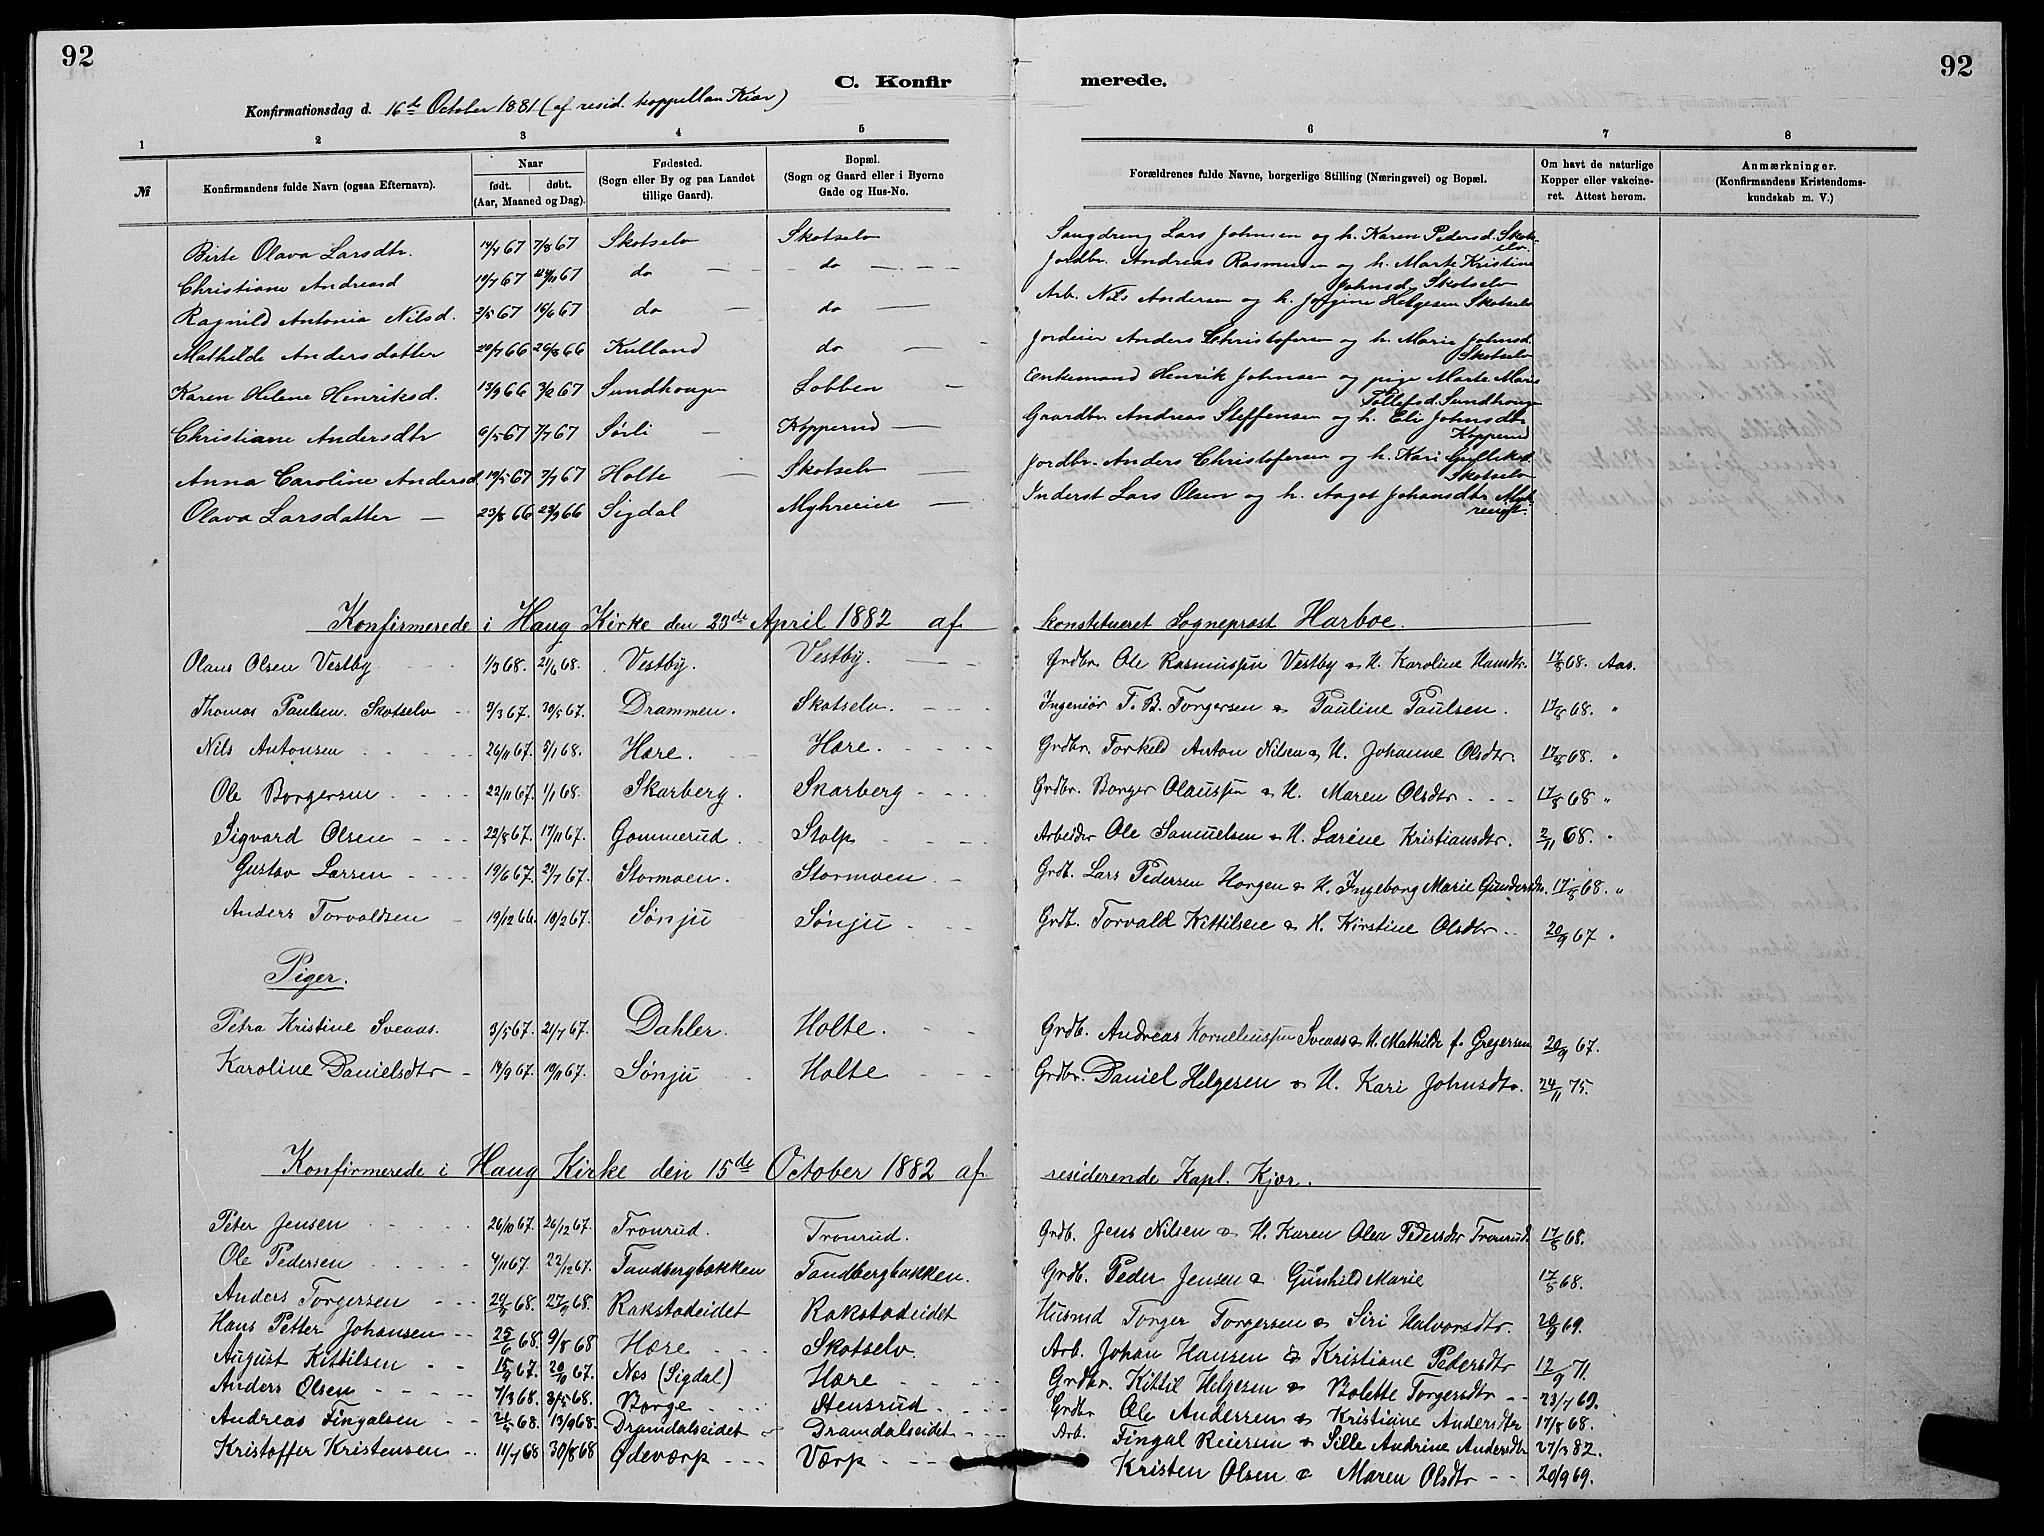 92
92
C. Konfir
merede.
Konfirmationsdag d. 16de October 1881 (af resid. kappellan Kiær)
1 2 3 4 5 6 7 8
№
Konfirmandens fulde Navn (ogsaa Efternavn).
Naar
født. døbt.
(Aar, Maaned og Dag).
Fødested.
(Sogn eller By og paa Landet
tillige Gaard).
Bopæl.
(Sogn og Gaard eller i Byerne
Gade og Hus-No.
Forældrenes fulde Navne, borgerlige Stilling (Næringsvei) og Bopæl.
Om havt de naturlige
Kopper eller vakcine-
ret. Attest herom.
Anmærkninger.
(Konfirmandens Kristendoms-
kundskab m. V.)
Birte Olava Larsdtr. 14/4 67 7/8 67 Skotselv Skotselv Lars Johnsen og h. Karen Pedersd. Skots-
elv.
Christiane Andreasd 19/7 67 24/11 67 do do Jordbr. Andreas Rasmussen og h. Marte Kristine
Johnsd. Skotselv
Ragnild Antonia Nilsd. 2/5 67 16/6 67 do do Arb. Nils Andersen og h. Jørgine Helgesen Skotselv
Mathilde Andersdatter 20/7 66 26/8 66 Kulland do Jordeier Anders Christofersen og h. Marie Johnsd.
Skotselv
Karen Helene Henriksd. 13/9 66 3/2 67 Sundhougen Lobben Enkemand Henrik Johnsen og pige Marte Marie
Tollefsd. Sundhougen
Christiane Andersdtr 6/5 67 7/7 67 Sørli Kopperud Gaardbr. Andreas Steffensen og h. Eli Johnsdtr
Kopperud
Anna Caroline Andersd. 19/5 67 7/7 67 Holte Skotselv Jordbr. Anders Christofersen og h. Kari Gulliksd.
Skotselv
Olava Larsdatter 23/8 66 23/9 66 Sigdal Myhreeiet Inderst Lars Olsen og h. Aagot Johansdtr Myh-
Konfirmerede i Haug Kirke den 23de April 1882 af konstitueret Sogneprest Harboe.
Olaus Olsen Vestby 1/3 68. 21/6 68. Vestby. Vestby. Grdbr. Ole Rasmussen Vestby & H. Karoline Hansdtr. 17/8 68. Aas.
Thomas Paulsen Skotselv 3/3 67. 30/5 67. Drammen. Skotselv. Ingeniør T. B. Torgersen & Pauline Paulsen. 17/8 68. "
Nils Antonsen 26/11 67. 5/1 68. Hære. Hære. Grdbr. Torkeld Anton Nilsen & H. Johanne Olsdtr. 17/8 68. "
Ole Borgersen 22/11 67. 1/1 68. Skarberg. Skarberg Grdbr. Borger Olaussen & H. Maren Olsdtr 17/8 68 "
Sigvard Olsen 22/8 67. 17/11 67. Gommerud. Stolp Arbeider Ole Samuelsen & H. Larine Kristiansdtr. 2/11 68. "
Gustav Larsen 19/6 67. 21/7 67. Stormoen. Stormoen Grdb. Lars Pedersen Horgen & H. Ingeborg Marie Gundersdtr. 17/8 68. "
Anders Torvaldsen 19/12 66. 10/2 67. Sønju Sønju Grdb. Torvald Kittilsen & H. Kirstine Olsdtr 20/9 67 "
Piger.
Petra Kristine Sveaas. 3/5 67. 21/7 67. Dahler. Holte. Grdb. Andreas Korneliussen Sveaas & H. Mathilde f. Gregersen 20/9 67.
Karoline Danielsdtr 14/9 67. 10/11 67. Sønju Holte Grdbr. Daniel Helgesen & H. Kari Johnsdtr. 24/11 75.
Konfirmerede i Haug Kirke den 15de October 1882 af residerende Kapl. Kjær.
Peter Jensen 26/10 67. 26/12 67. Tronrud. Tronrud. Grdb. Jens Nilsen & H. Karen Olea Pedersdtr Tronrud. 17/8 68.
Ole Pedersen 4/11 67. 22/12 67. Tandbergbakken Tandbergbakken. Grdb. Peder Jensen & Gunhild Marie 17/8 68.
Anders Torgersen 68. 27/9 68. Rakstadeidet Rakstadeidet Husmd Torger Torgersen & Siri Halvorsdtr. 20/9 69.
Hans Petter Johansen 25/6 68. 9/8 68 Hære Skotselv. Arb. Johan Hansen & Kristiane Pedersdtr 12/9 71.
August Kittilsen 15/9 67. 20/11 67. Næs (Sigdal) Hære Grdbr. Kittil Helgesen & Bolette Torgersdtr 23/7 69.
Anders Olsen 7/3 68. 3/5 68. Borge Stensrud Grdbr Ole Andersen & Kristiane Andersdtr 17/8 68.
Andreas Fingalsen 68. 13/9 68. Dramdalseidet Dramdalseidet Arb. Fingal Reiersen & Sille Andrine Andersdtr 27/3 82.
Kristoffer Kristensen 11/7 68 30/8 68 Ødeværp Værp Kristen Olsen & Maren Olsdtr 20/9 69.